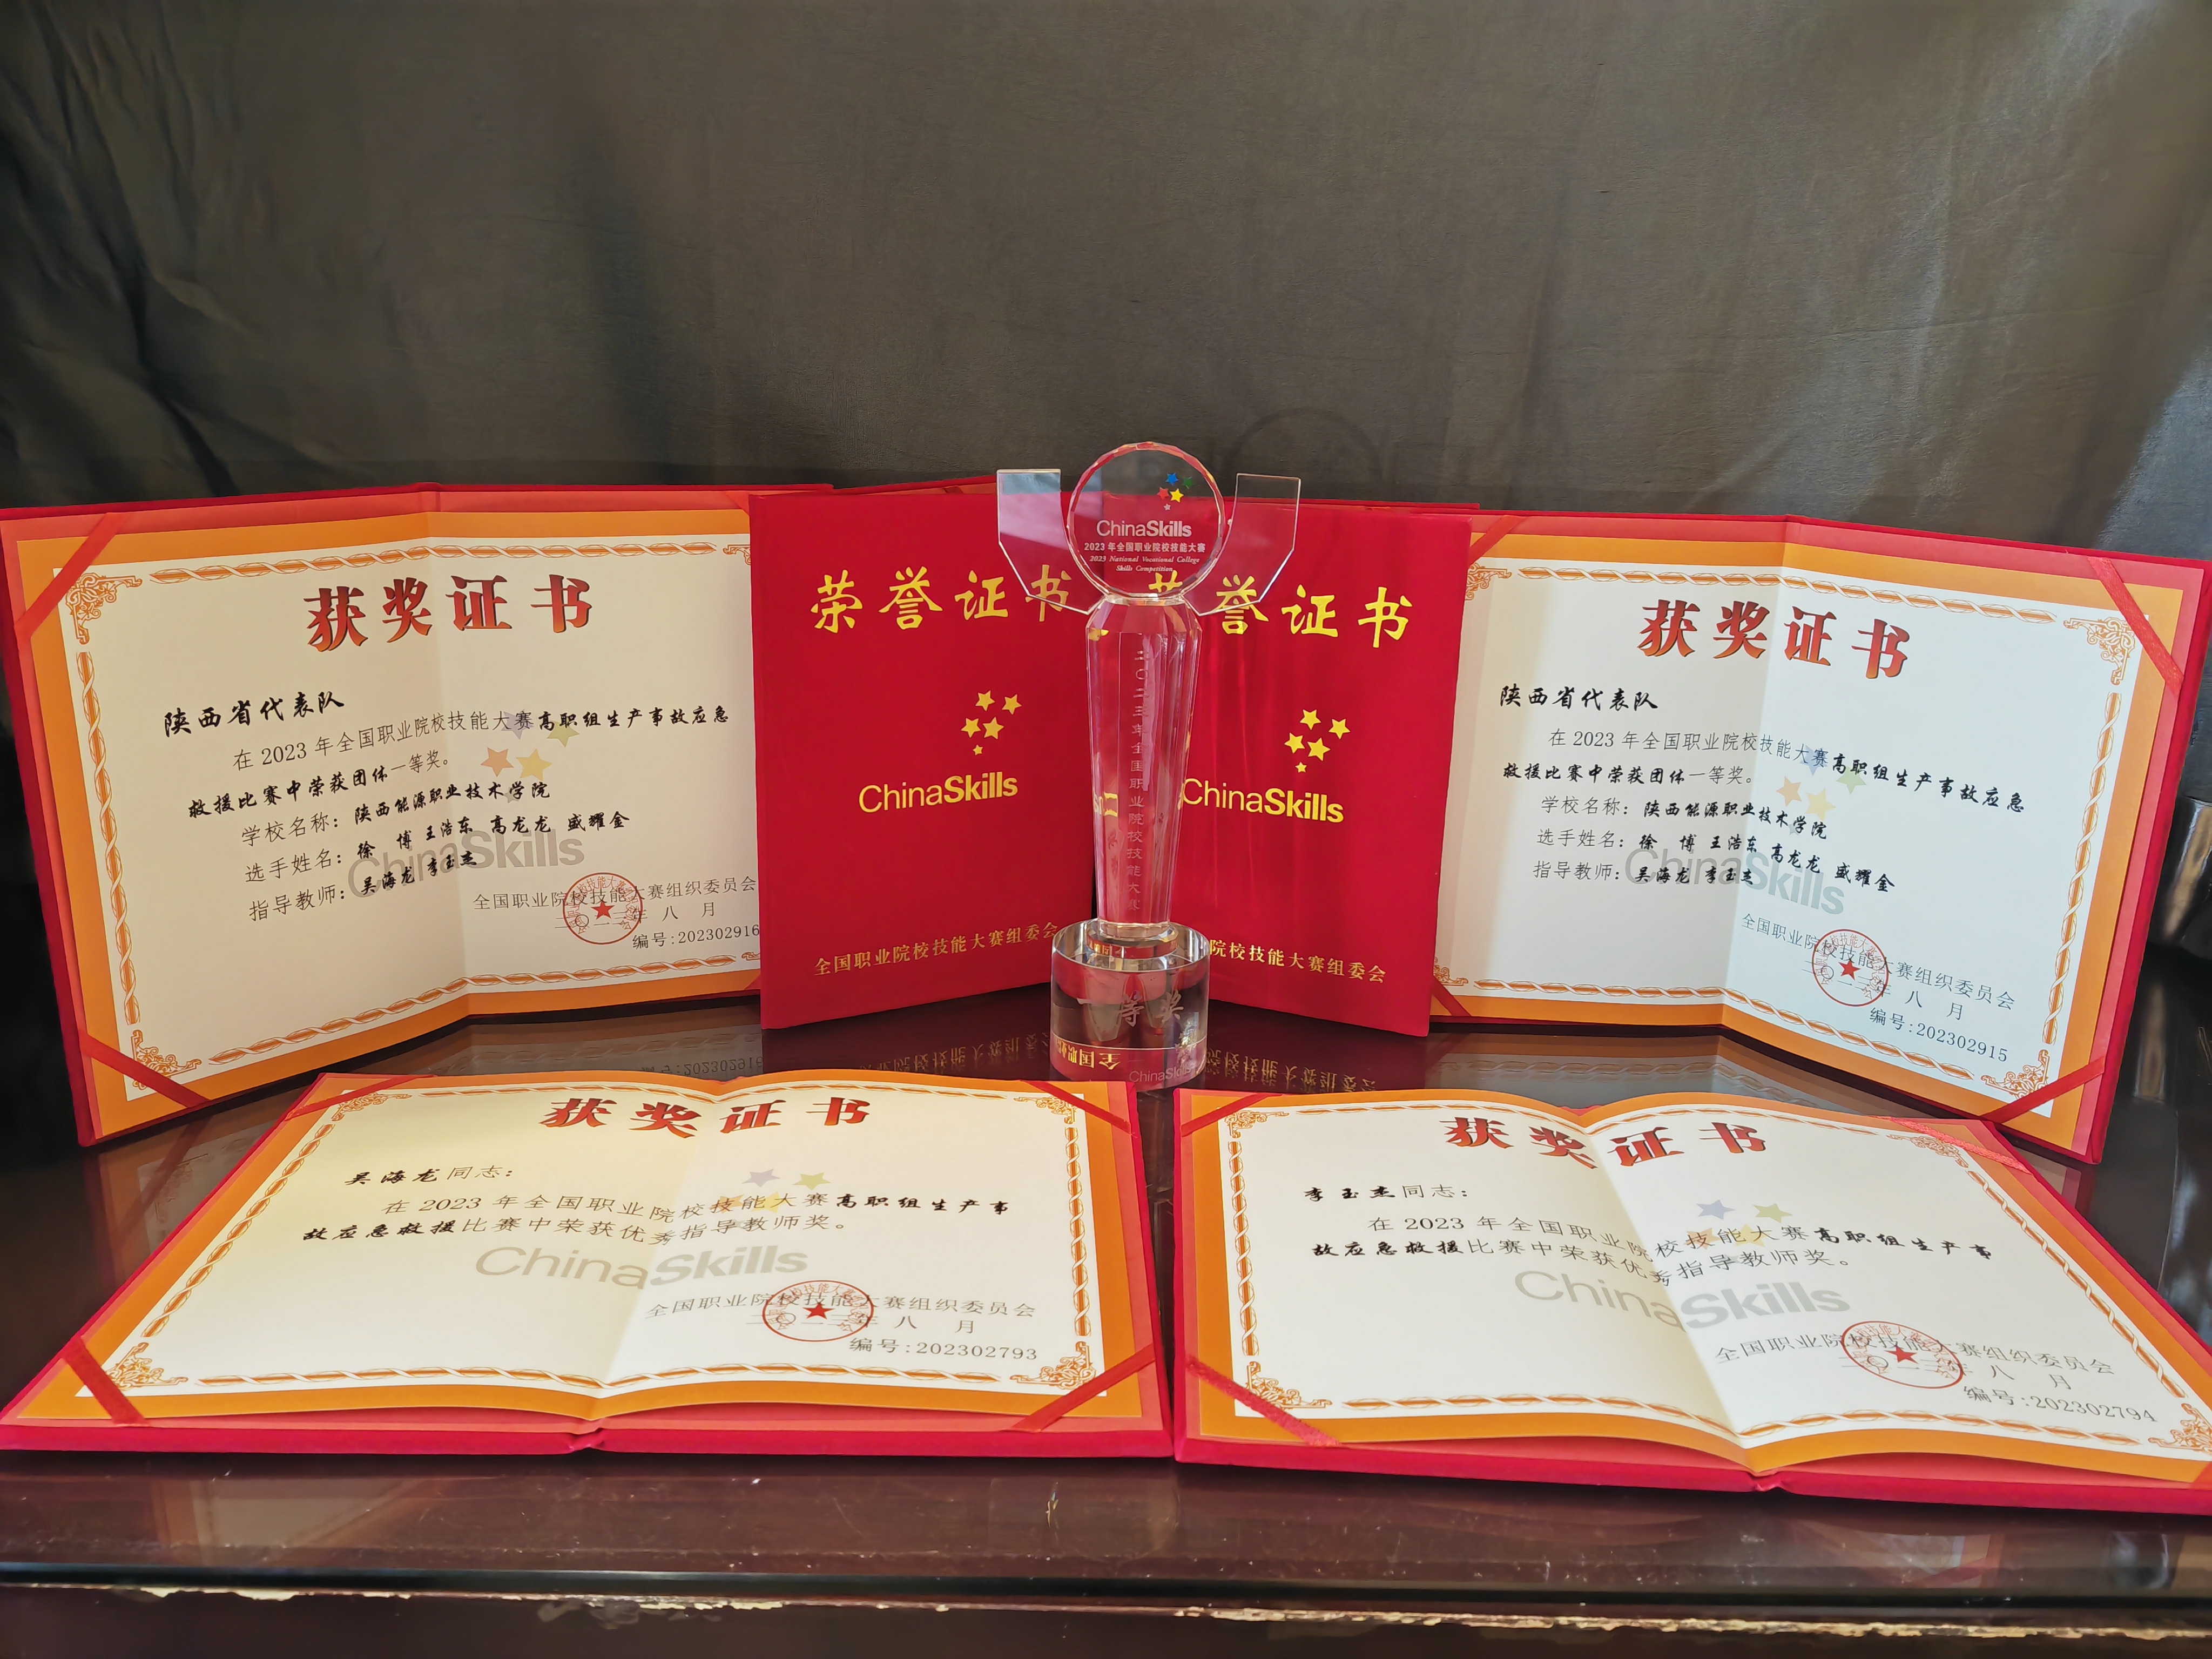 获奖证书
陕西省代表队
在2023年全国职业院校技能大赛高职组生产事故应急
救援比赛中荣获团体一等奖。
学校名称：陕西能源职业技术学院
选手姓名：徐 博 王浩东 高龙龙 盛耀金
指导教师：吴海龙 李玉杰
ChinaSkills
全国职业院校技能大赛组织委员会
二〇二三年八月
编号:202302916
荣誉证书
ChinaSkills
全国职业院校技能大赛组委会
ChinaSkills
2023年全国职业院校技能大赛
2023 National Vocational College
Skills Competition
二〇二三年全国职业院校技能大赛
一等奖
ChinaSkills
荣誉证书
ChinaSkills
院校技能大赛组委会
获奖证书
陕西省代表队
在2023年全国职业院校技能大赛高职组生产事故应急
救援比赛中荣获团体一等奖。
学校名称：陕西能源职业技术学院
选手姓名：徐 博 王浩东 高龙龙 盛耀金
指导教师：吴海龙 李玉杰
ChinaSkills
全国职业院校技能大赛组织委员会
二〇二三年八月
编号:202302915
获奖证书
吴海龙同志：
在2023年全国职业院校技能大赛高职组生产事
故应急救援比赛中荣获优秀指导教师奖。
ChinaSkills
全国职业院校技能大赛组织委员会
二〇二三年八月
编号:202302793
获奖证书
李玉杰同志：
在2023年全国职业院校技能大赛高职组生产事
故应急救援比赛中荣获优秀指导教师奖。
ChinaSkills
全国职业院校技能大赛组织委员会
二〇二三年八月
编号:202302794